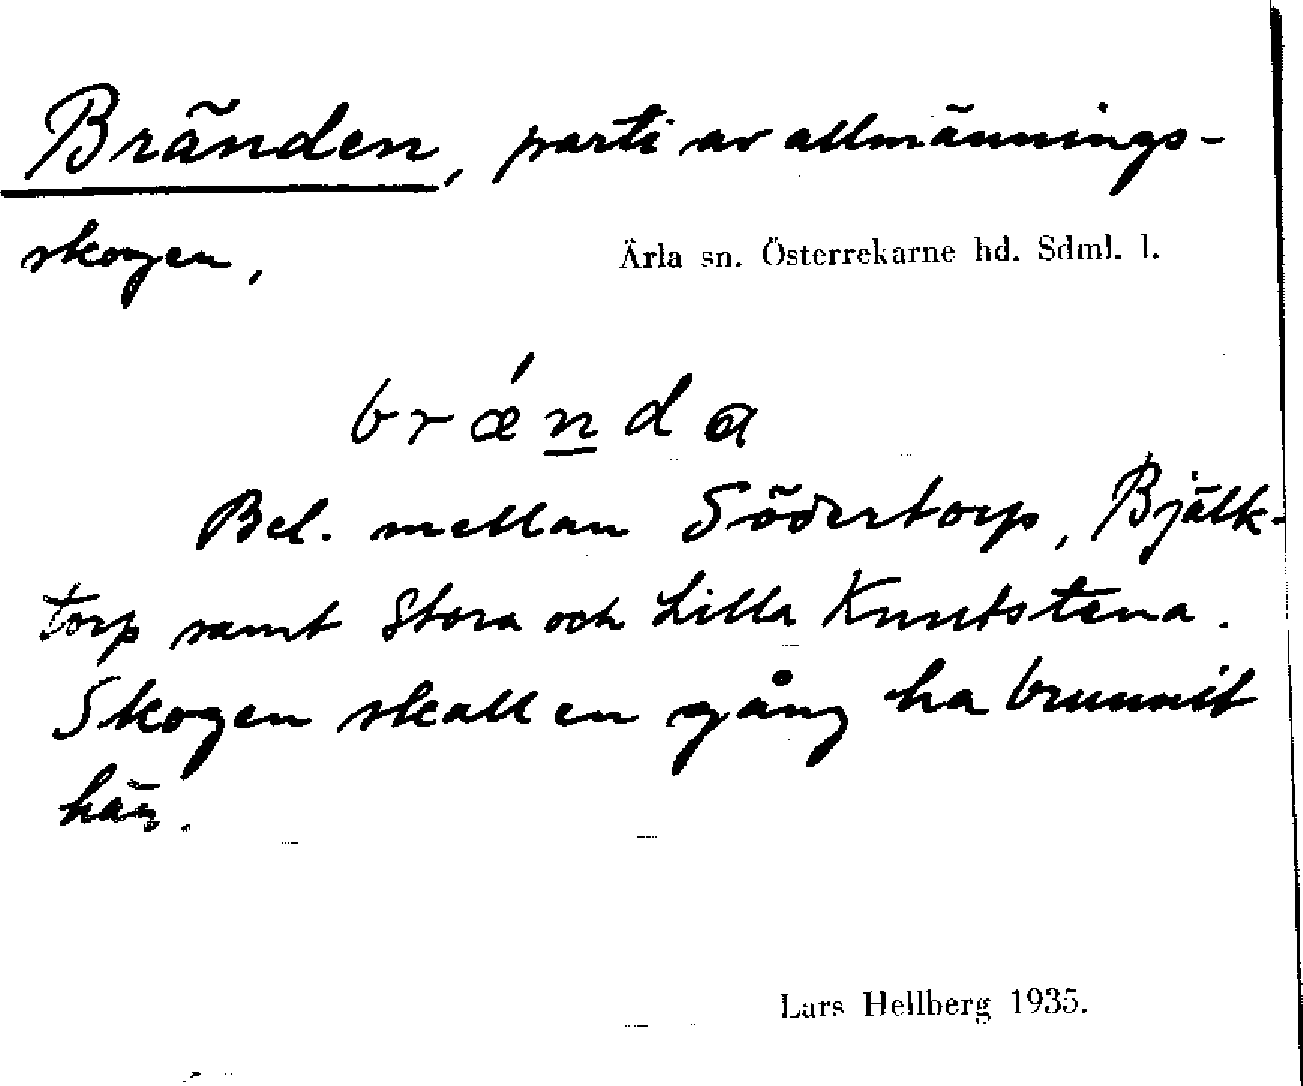 Bränden, parti av allmännings-
skogen,
Ärla sn. Österrekarne hd. Sdml. l.
brǽnda
Bel. mellan Södertorp, Bjälk-
torp samt Stora och Lilla Knutstena.
Skogen skall en gång ha brunnit
här.
Lars Hellberg 1935.